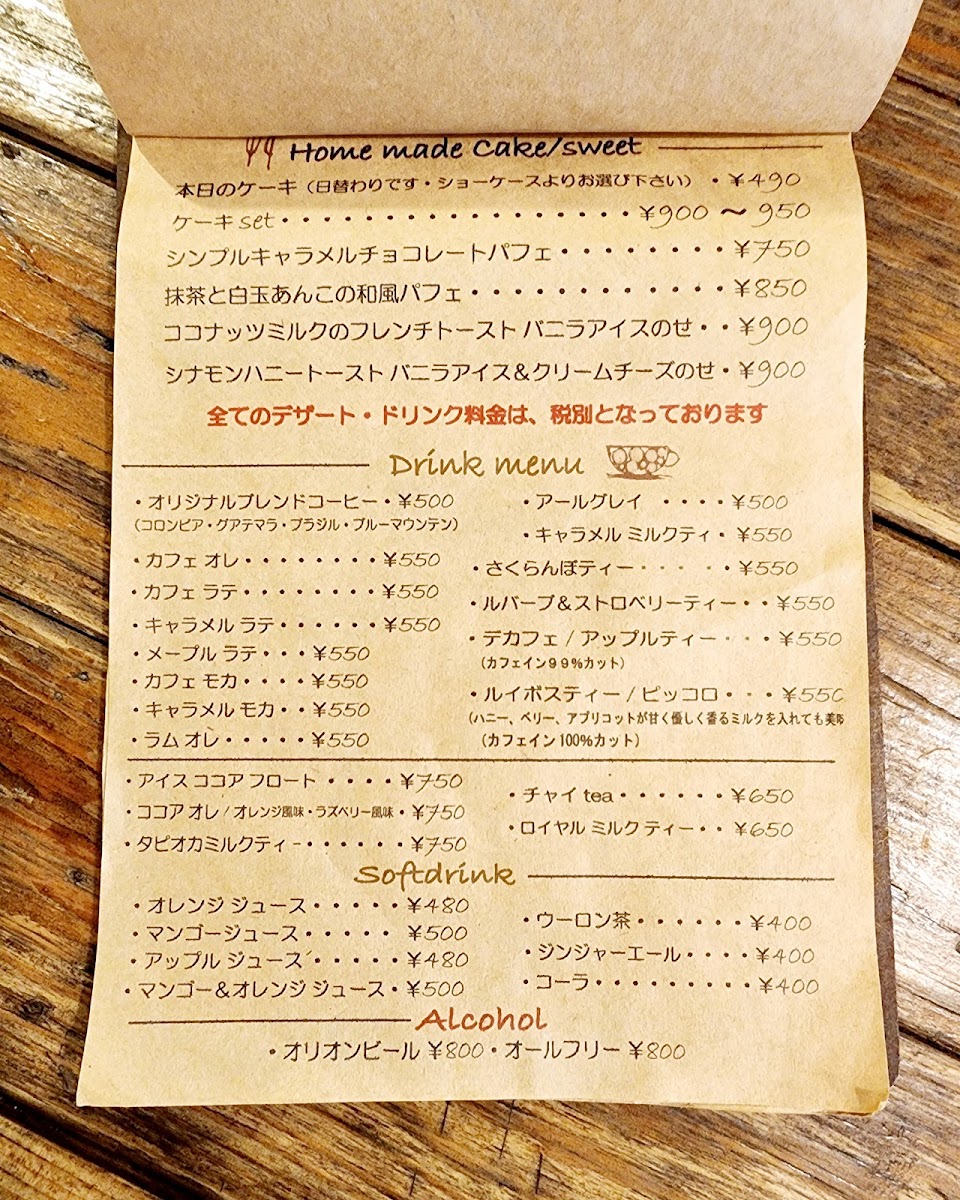 Home made Cake/sweet
本日のケーキ（日替わりです・ショーケースよりお選び下さい）・¥490
ケーキset・・・・・・・・・・・・・・・・・・¥900 〜 950
シンプルキャラメルチョコレートパフェ・・・・・・・・¥750
抹茶と白玉あんこの和風パフェ・・・・・・・・・・・・¥850
ココナッツミルクのフレンチトースト バニラアイスのせ・・¥900
シナモンハニートースト バニラアイス＆クリームチーズのせ・¥900
全てのデザート・ドリンク料金は、税別となっております
Drink menu
・オリジナルブレンドコーヒー・¥500
（コロンビア・グアテマラ・ブラジル・ブルーマウンテン）
・カフェ オレ・・・・・・・・¥550
・カフェ ラテ・・・・・・・・¥550
・キャラメル ラテ・・・・・・¥550
・メープル ラテ・・・¥550
・カフェ モカ・・・・¥550
・キャラメル モカ・・¥550
・ラム オレ・・・・・¥550
・アールグレイ ・・・・¥500
・キャラメル ミルクティ・¥550
・さくらんぼティー・・ ・・¥550
・ルバーブ＆ストロベリーティー・・¥550
・デカフェ / アップルティー・・・¥550
（カフェイン９９％カット）
・ルイボスティー / ピッコロ・・・¥550
（ハニー、ベリー、アプリコットが甘く優しく香るミルクを入れても美味
（カフェイン 100％カット）
・アイス ココア フロート ・・・・¥750
・ココア オレ / オレンジ風味・ラズベリー風味・¥750
・タピオカミルクティ -・・・・・・¥750
・チャイ tea・・・・・・¥650
・ロイヤル ミルク ティー・・¥650
Softdrink
・オレンジ ジュース・・・・・¥480
・マンゴージュース・・・・・ ¥500
・アップル ジュース・・・・・¥480
・マンゴー＆オレンジ ジュース・¥500
・ウーロン茶・・・・・・¥400
・ジンジャーエール・・・・¥400
・コーラ・・・・・・・・・¥400
Alcohol
・オリオンビール ¥800・オールフリー ¥800